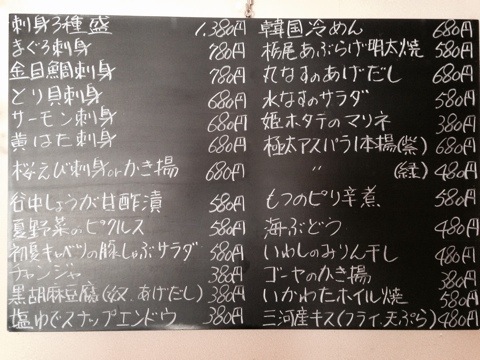 刺身3種盛 1,380円
まぐろ刺身 780円
金目鯛刺身 780円
とり貝刺身 680円
サーモン刺身 680円
黄はた刺身 680円
桜えび刺身orかき揚 680円
谷中しょうが甘酢漬 580円
夏野菜のピクルス 580円
初夏キャベツの豚しゃぶサラダ 580円
チャンジャ 380円
黒胡麻豆腐(奴、あげだし) 380円
塩ゆでスナップエンドウ 380円
韓国冷めん 680円
栃尾あぶらげ明太焼 580円
丸なすのあげだし 680円
水なすのサラダ 580円
姫ホタテのマリネ 380円
極太アスパラ1本揚(紫) 680円
〃 (緑) 480円
もつのピリ辛煮 580円
海ぶどう 480円
いわしのみりん干し 480円
ゴーヤのかき揚 380円
いかわたホイル焼 580円
三河産キス(フライ、天ぷら) 480円